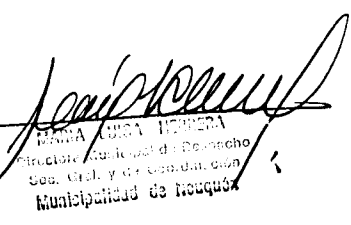 MARIA LUISA HERRERA
Directora Municipal de Despacho
Sec. Gral. y de Coordinación
Municipalidad de Neuquén